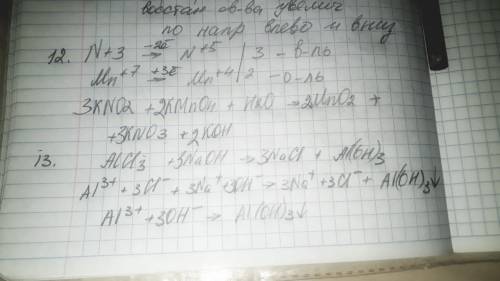 восстан св-ва увелич
по напр влево и вниз
12. N+3 -2e̅ → N+5 | 3 - в-ль
Mn+7 +3e̅ → Mn+4 | 2 - о-ль
3KNO2 + 2KMnO4 + H2O → 2MnO2 +
+3KNO3 + 2KOH
13. AlCl3 + 3NaOH → 3NaCl + Al(OH)3
Al3+ + 3Cl- + 3Na+ + 3OH- → 3Na+ + 3Cl- + Al(OH)3↓
Al3+ + 3OH- → Al(OH)3↓